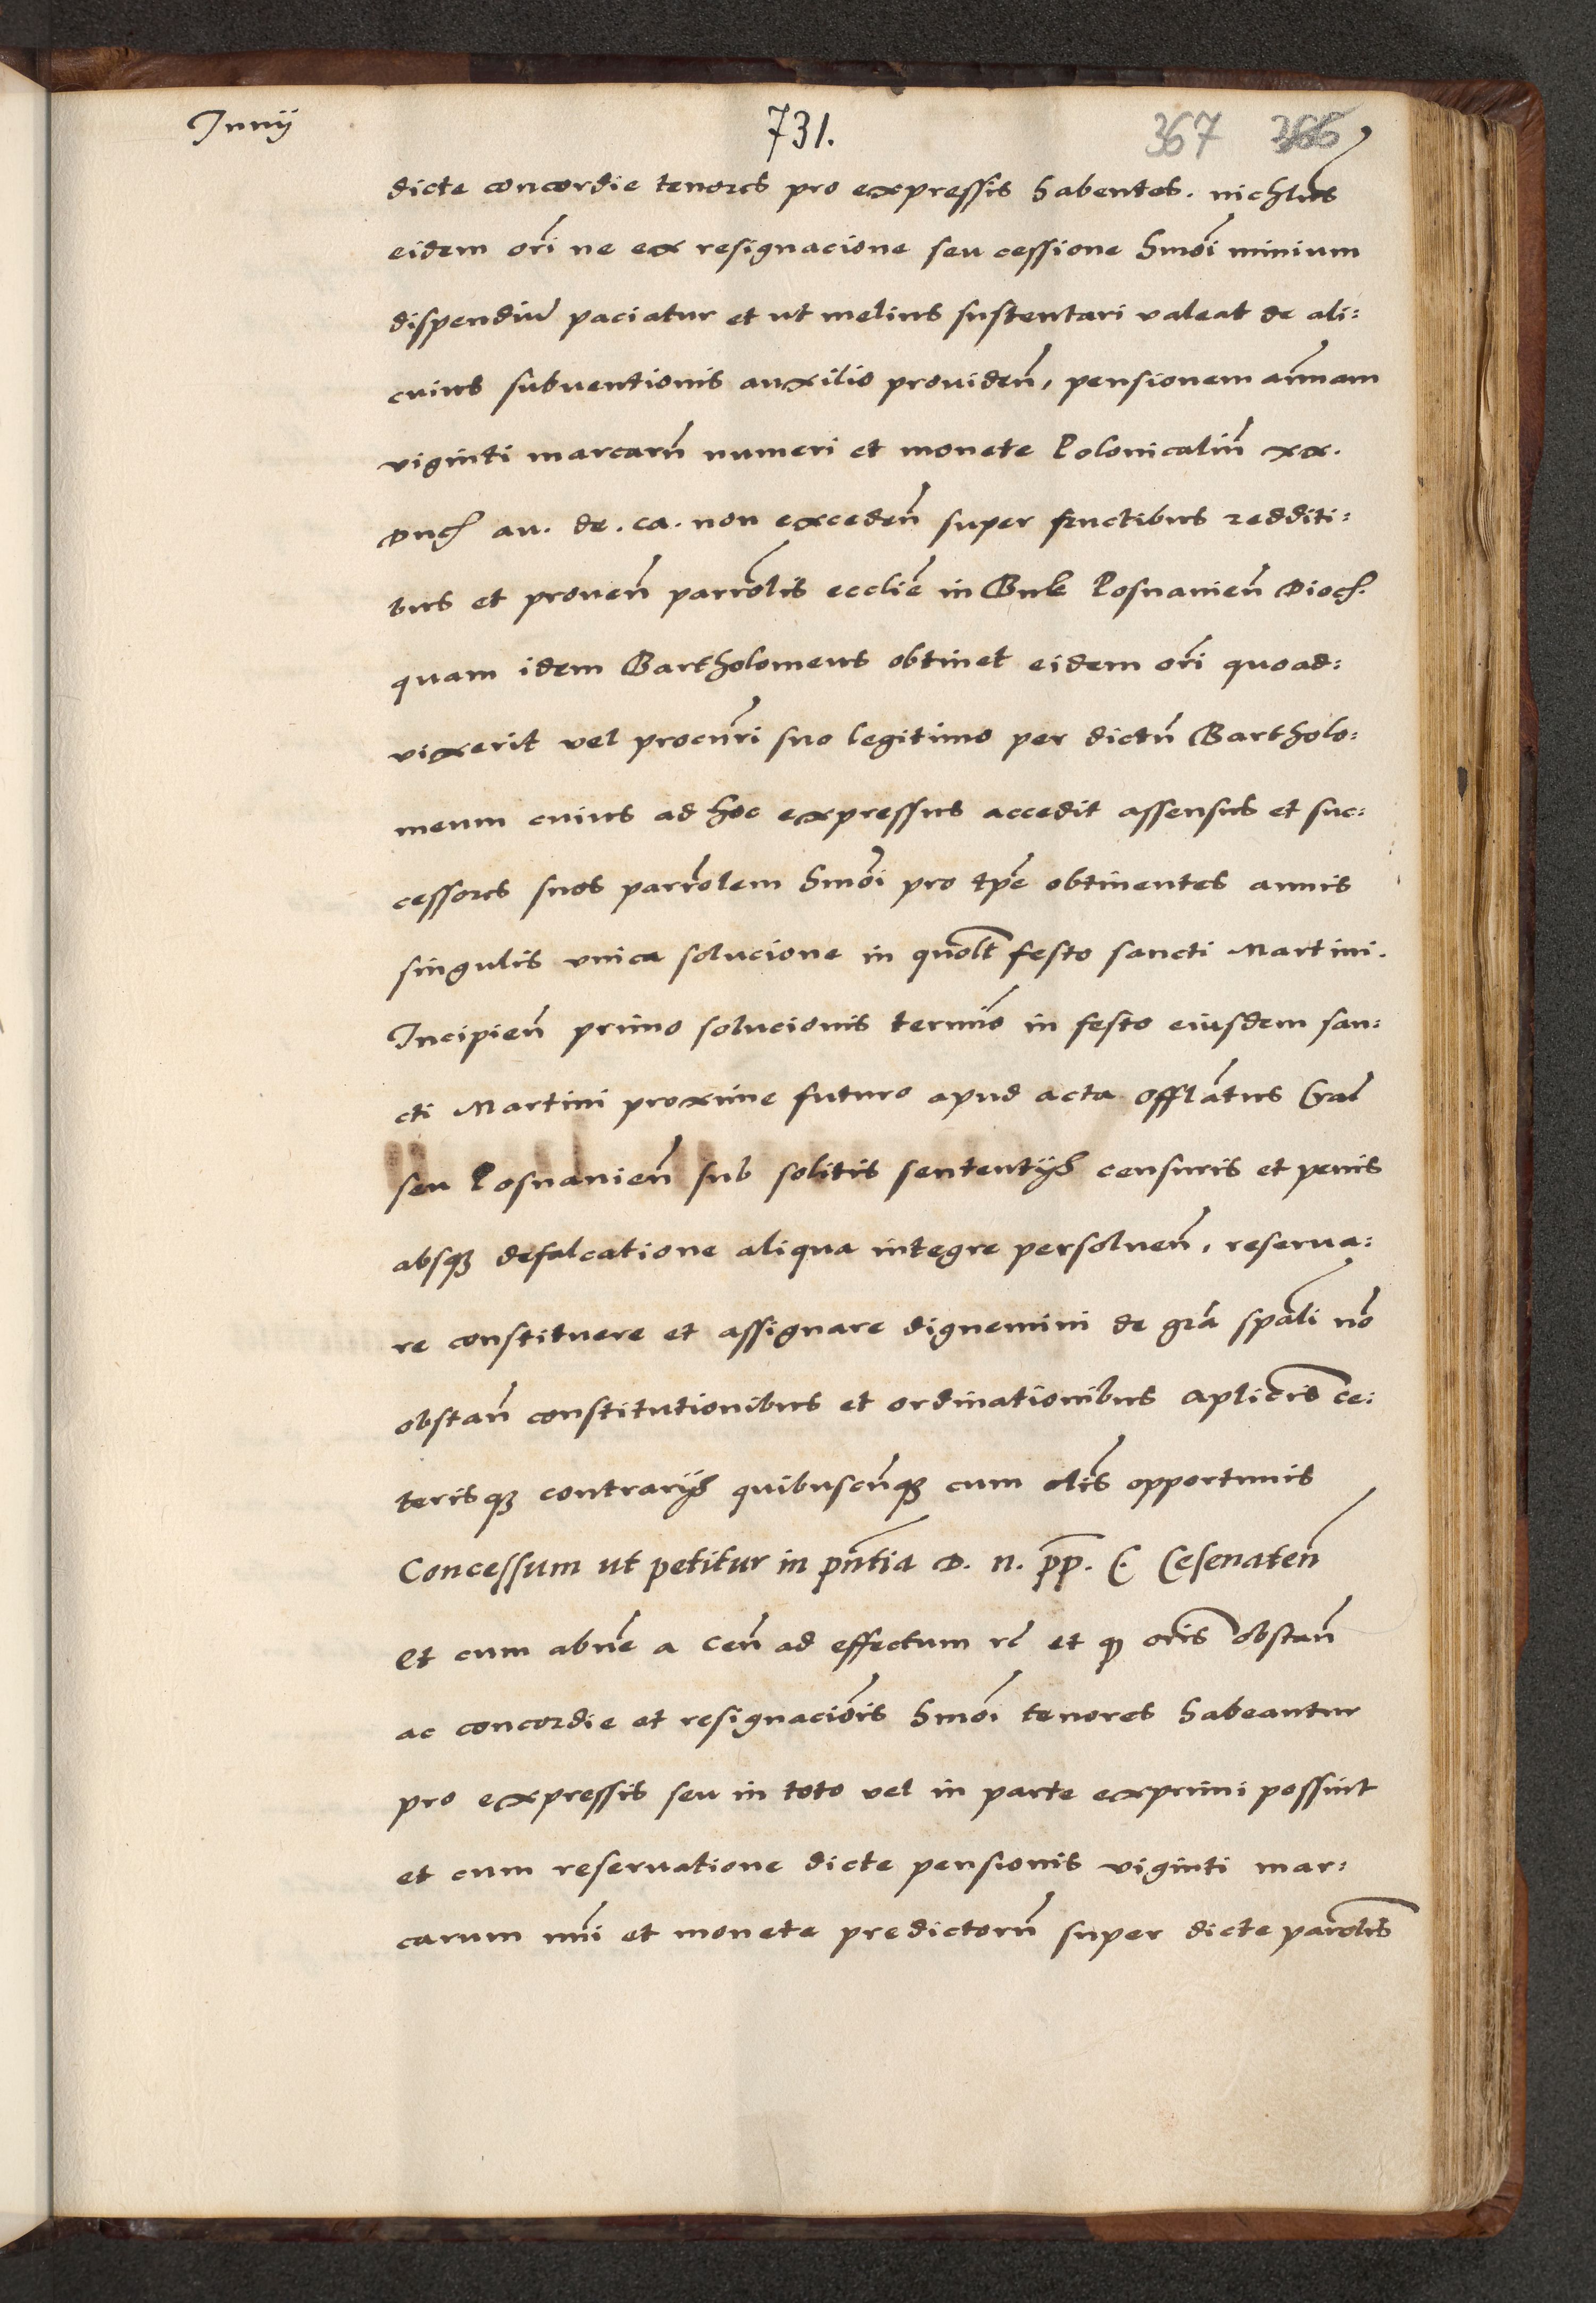 Junij
731.
367 366
dicte concordie tenores pro expressis habentes. nichilus
eidem ori ne ex resignacione seu cessione hmoi nimium
dispendiu paciatur et ut melius sustentari valeat de ali:
cuius subuentionis auxilio prouiden, pensionem annuam
viginti marcaru numeri et monete Polonicaliu xx.
duc au. de. ca. non exceden super fructibus redditi:
bus et prouen parrolis ecclie in Buk Posnanien Dioc.
quam idem Bartholomeus obtinet eidem ori quoad:
vixerit vel procuri suo legitimo per dictu Bartholo:
meum cuius ad hoc expressus accedit assensus et suc:
cessores suos parrolem hmoi pro tpe obtinentes annis
singulis vnica solucione in quolt festo sancti Martini.
Incipien primo solucionis termio in festo eiusdem san:
cti Martini proxime futuro apud acta offlatus Gnal
seu Posnanien sub solitis sententijs censuris et penis
absq defalcatione aliqua integre persoluen, reserua:
re constituere et assignare dignemini de gra spali no
obstan constitutionibus et ordinationibus aplicis ce:
terisq contrarijs quibuscunq cum clis opportunis
Concessum ut petitur in pntia D. n. pp. C. Cesenaten
Et cum absne a cen ad effectum rc et q oris obstan
ac concordie et resignaciois hmoi tenores habeantur
pro expressis seu in toto vel in parte exprimi possint
et cum reseruatione dicte pensionis viginti mar:
carum nui et monete predictoru super dicte parolis